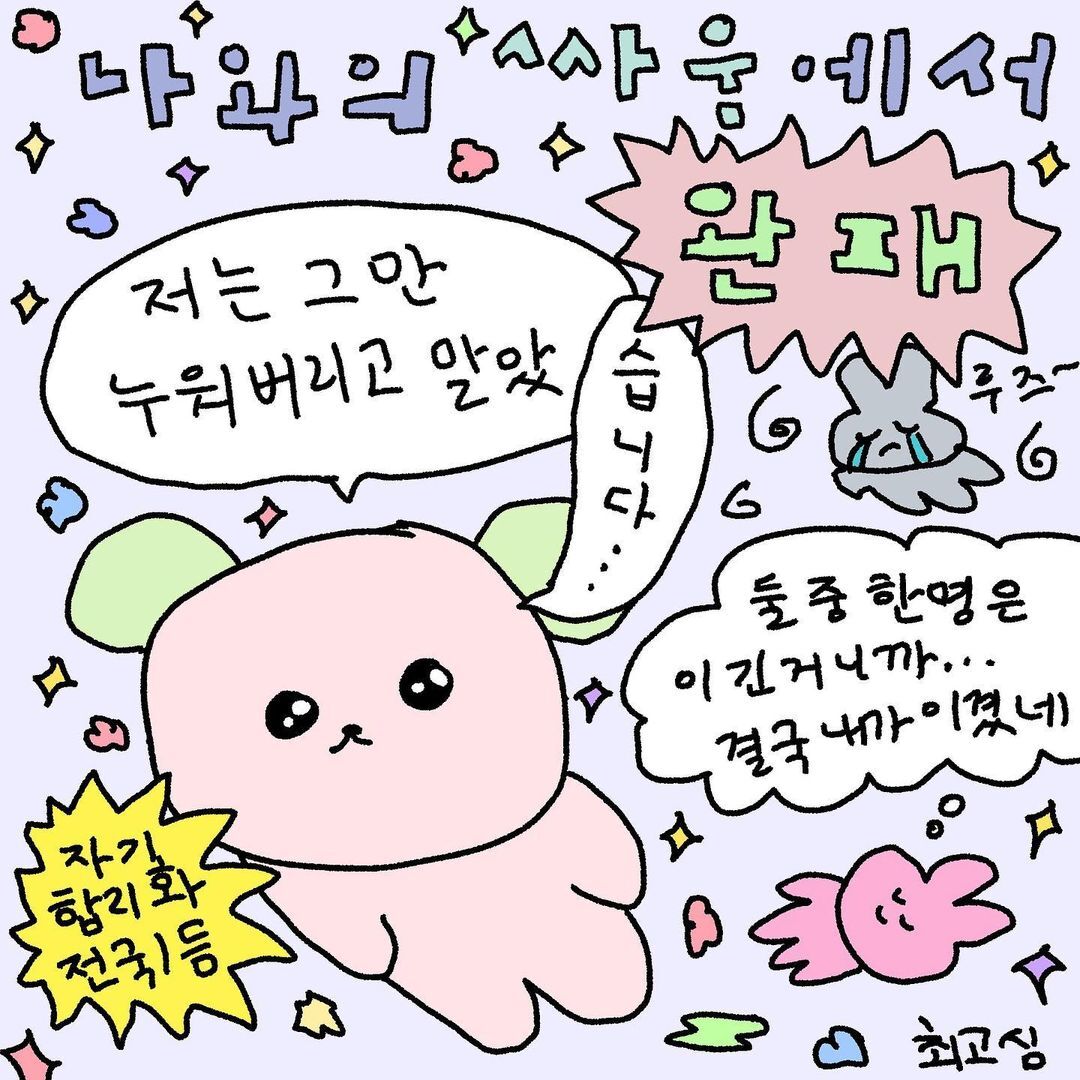 나와의 싸움에서
완패
저는 그만
누워버리고 말았
습
니
다...
루즈~
둘 중 한명은
이긴거니까...
결국 내가 이겼네
자기
합리화
전국1등
최고심